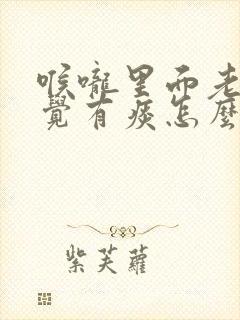 喉嚨里面老
覺有痰怎麼
紫芙蘿